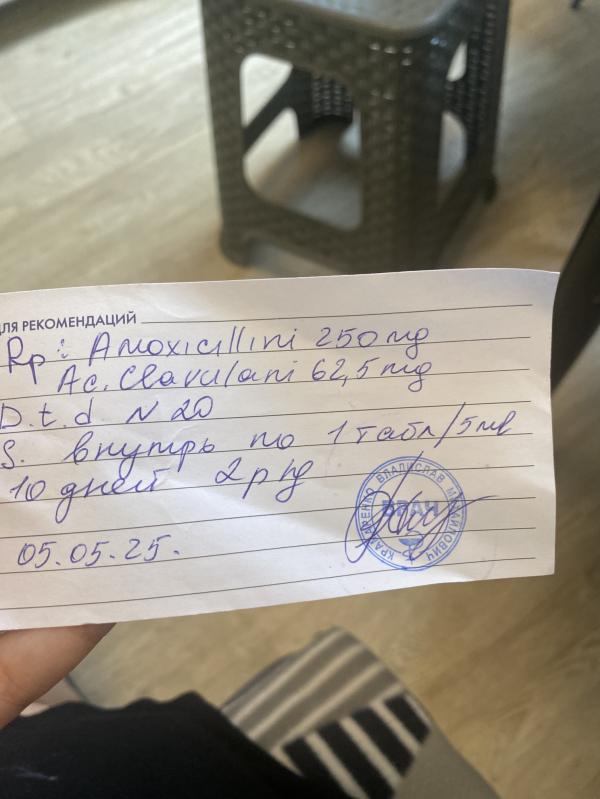 ДЛЯ РЕКОМЕНДАЦИЙ
Rp: Amoxicillini 250 mg
Ac. Clavulani 62,5 mg
D.t.d N 20
S. внутрь по 1 табл/5 мл
10 дней 2 р/д
05.05.25.
ВЛАДИСЛАВ
ВРАЧ